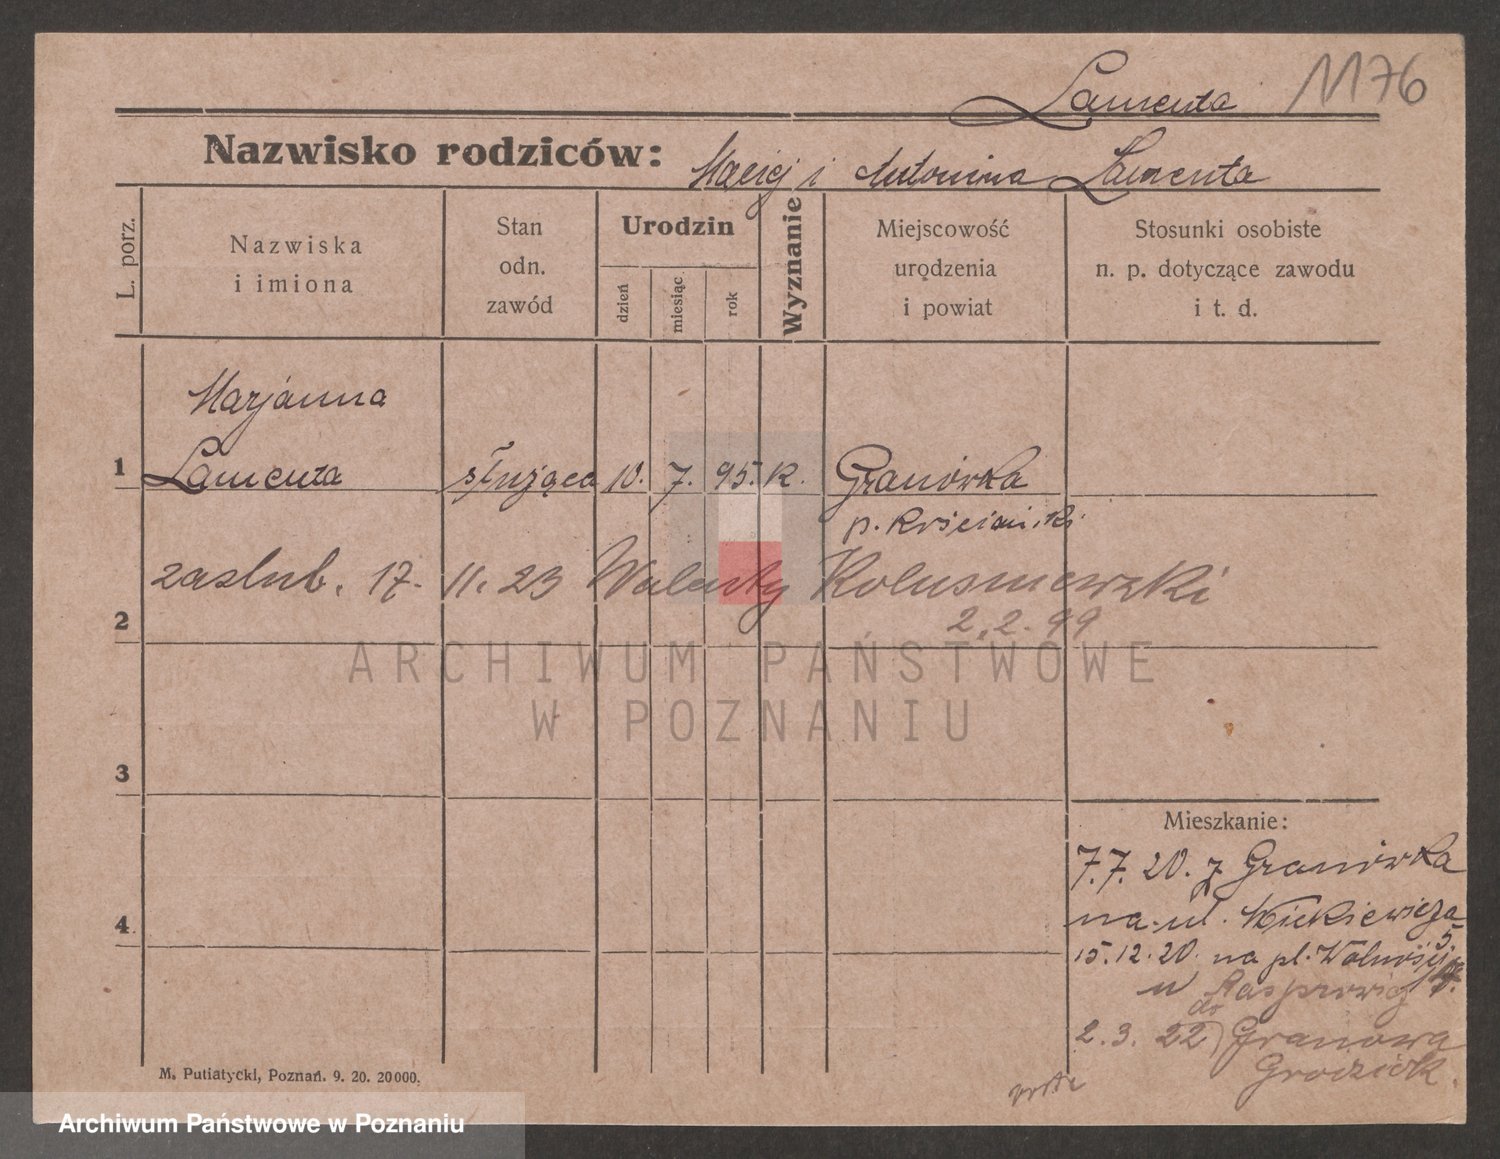 Lamenta 1176
Nazwisko rodziców: Maciej i Antonina Lamenta
L. porz.
Nazwiska
i imiona
Stan
odn.
zawód
Urodzin
dzień
miesiąc
rok
Wyznanie
Miejscowość
urodzenia
i powiat
Stosunki osobiste
n. p. dotyczące zawodu
i t. d.
Marjanna
1 Lamenta służąca 10. 7. 95. k. Granówka
p. Kościański
zaslub. 17. 11. 23 Walenty Kolusniewski
2 2.2.99
ARCHIWUM PAŃSTWOWE
W POZNANIU
3
Mieszkanie:
7.7.20. z Granówka
4 na ul.
5.
15.12.20. na pl. Wolności
u
do
2.3.22 Granowa
Grodzisk.
M. Putiatycki, Poznań. 9. 20. 20000.
Archiwum Państwowe w Poznaniu